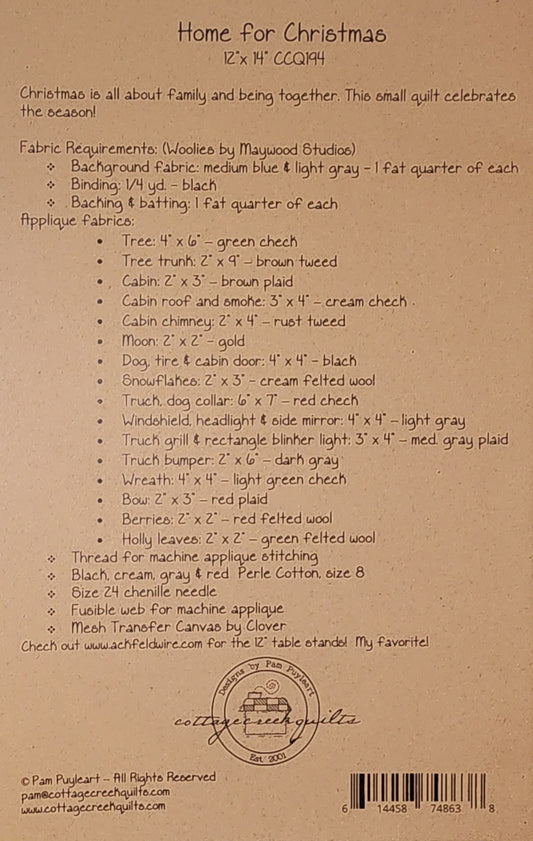 Home for Christmas
12"x 14" CCQ194
Christmas is all about family and being together. This small quilt celebrates
the season!
Fabric Requirements: (Woolies by Maywood Studios)
❖ Background fabric: medium blue & light gray – 1 fat quarter of each
❖ Binding: 1/4 yd. – black
❖ Backing & batting: 1 fat quarter of each
Applique fabrics:
• Tree: 4" x 6" – green check
• Tree trunk: 2" x 9" – brown tweed
• Cabin: 2" x 3" – brown plaid
• Cabin roof and smoke: 3" x 4" – cream check
• Cabin chimney: 2" x 4" – rust tweed
• Moon: 2" x 2" – gold
• Dog, tire & cabin door: 4" x 4" – black
• Snowflakes: 2" x 3" – cream felted wool
• Truck, dog collar: 6" x 7" – red check
• Windshield, headlight & side mirror: 4" x 4" – light gray
• Truck grill & rectangle blinker light: 3" x 4" – med. gray plaid
• Truck bumper: 2" x 6" – dark gray
• Wreath: 4" x 4" – light green check
• Bow: 2" x 3" – red plaid
• Berries: 2" x 2" – red felted wool
• Holly leaves: 2" x 2" – green felted wool
❖ Thread for machine applique stitching
❖ Black, cream, gray & red Perle Cotton, size 8
❖ Size 24 chenille needle
❖ Fusible web for machine applique
❖ Mesh Transfer Canvas by Clover
Check out www.ackfeldwire.com for the 12" table stands! My favorite!
Designs by Pam Puyleart
cottagecreekquilts
Est. 2001
© Pam Puyleart – All Rights Reserved
pam@cottagecreekquilts.com
www.cottagecreekquilts.com
6 14458 74863 8